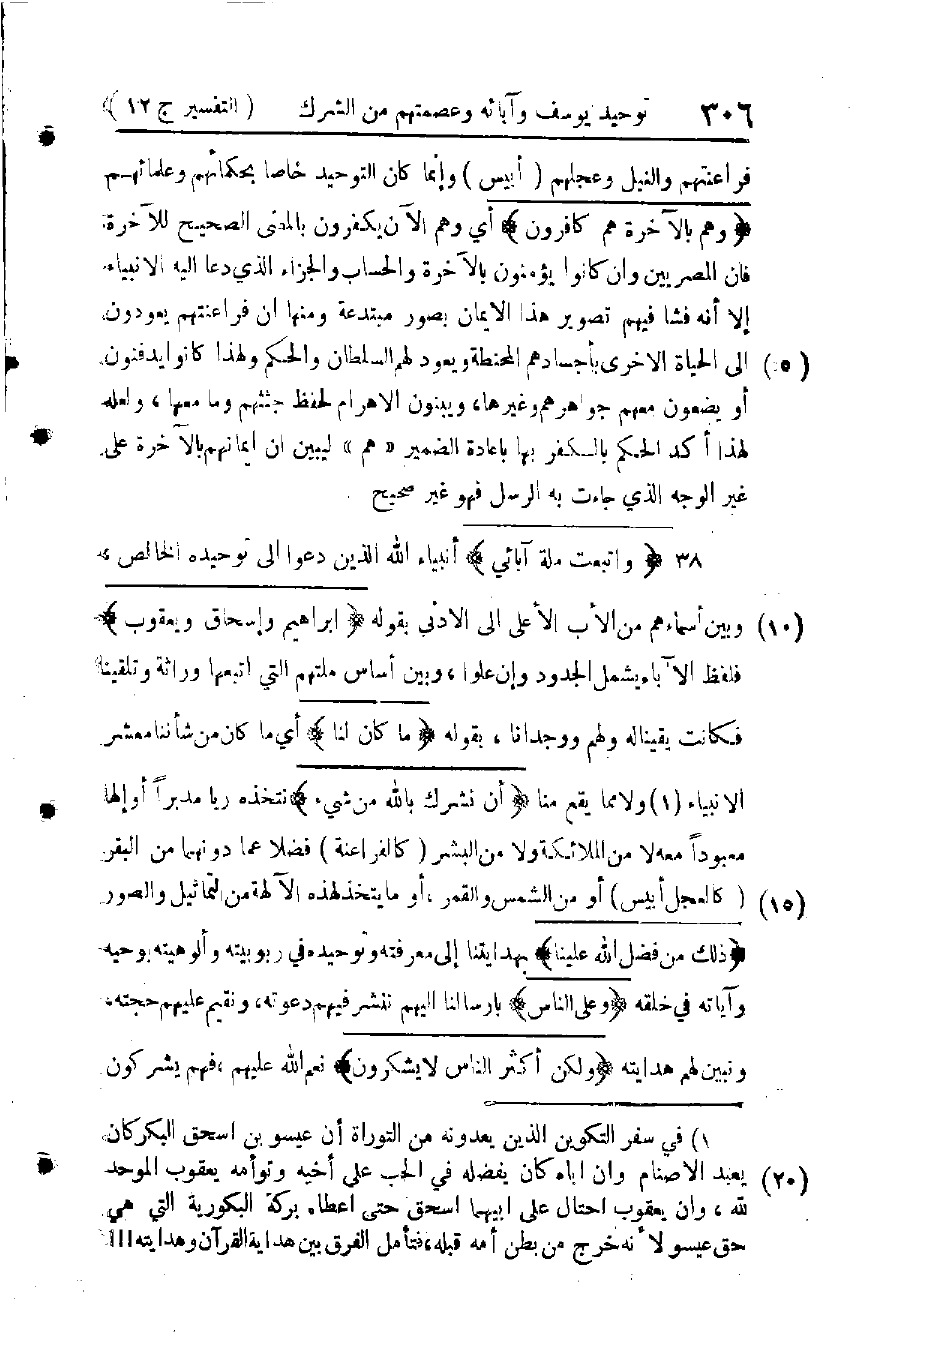 ٣٠٦ توحيد يوسف وآبائه وعصمتهم من الشرك ( التفسير ج ١٢ )
فراعنتهم والنيل وعجلهم ( أبيس ) وإنما كان التوحيد خاصا بحكمائهم وعلمائهم
﴿ وهم بالآخرة هم كافرون ﴾ أي وهم الآن يكفرون بالمعنى الصحيح للآخرة
فان المصريين وان كانوا يؤمنون بالآخرة والحساب والجزاء الذي دعا اليه الانبياء
إلا أنه فشا فيهم تصوير هذا الايمان بصور مبتدعة ومنها ان فراعنتهم يعودون
(٥) الى الحياة الاخرى بأجسادهم المحنطة ويعود لهم السلطان والحكم ولهذا كانوا يدفنون
أو يضعون معهم جواهرهم وغيرها، ويبنون الاهرام لحفظ جثثهم وما معها ، ولعله
لهذا أكد الحكم بالكفر بها باعادة الضمير « هم » ليبين ان ايمانهم بالآخرة على
غير الوجه الذي جاءت به الرسل فهو غير صحيح
٣٨ ﴿ واتبعت ملة آبائي ﴾ أنبياء الله الذين دعوا الى توحيده الخالص ،
(١٠) وبين أسماءهم من الأب الأعلى الى الادنى بقوله ﴿ ابراهيم وإسحاق ويعقوب ﴾
فلفظ الآباء يشمل الجدود وإن علوا ، وبين أساس ملتهم التي اتبعها وراثة وتلقينا
فكانت يقينا له ولهم ووجدانا ، بقوله ﴿ ما كان لنا ﴾ أي ما كان من شأننا معشر
الانبياء (١) ولا مما يقع منا ﴿ أن نشرك بالله من شيء ﴾ نتخذه ربا مدبراً أو إلها
معبوداً معه لا من الملائكة ولا من البشر ( كالفراعنة ) فضلا عما دونهما من البقر
(١٥) ( كالعجل أبيس ) أو من الشمس والقمر ، أو ما يتخذ لهذه الآلهة من التماثيل والصور
﴿ ذلك من فضل الله علينا ﴾ بهدايتنا إلى معرفته وتوحيده في ربوبيته وألوهيته بوحيه
وآياته في خلقه ﴿ وعلى الناس ﴾ بارسالنا اليهم ننشر فيهم دعوته، ونقيم عليهم حجته،
ونبين لهم هدايته ﴿ ولكن أكثر الناس لا يشكرون ﴾ نعم الله عليهم ، فهم يشركون
١) في سفر التكوين الذين يعدونه من التوراة أن عيسو بن اسحق البكر كان
(٢٠) يعبد الاصنام وان اباه كان يفضله في الحب على أخيه وتوأمه يعقوب الموحد
لله ، وان يعقوب احتال على ابيهما اسحق حتى اعطاه بركة البكورية التي هي
حق عيسو لأنه خرج من بطن أمه قبله، فتأمل الفرق بين هداية القرآن وهدايته !!!